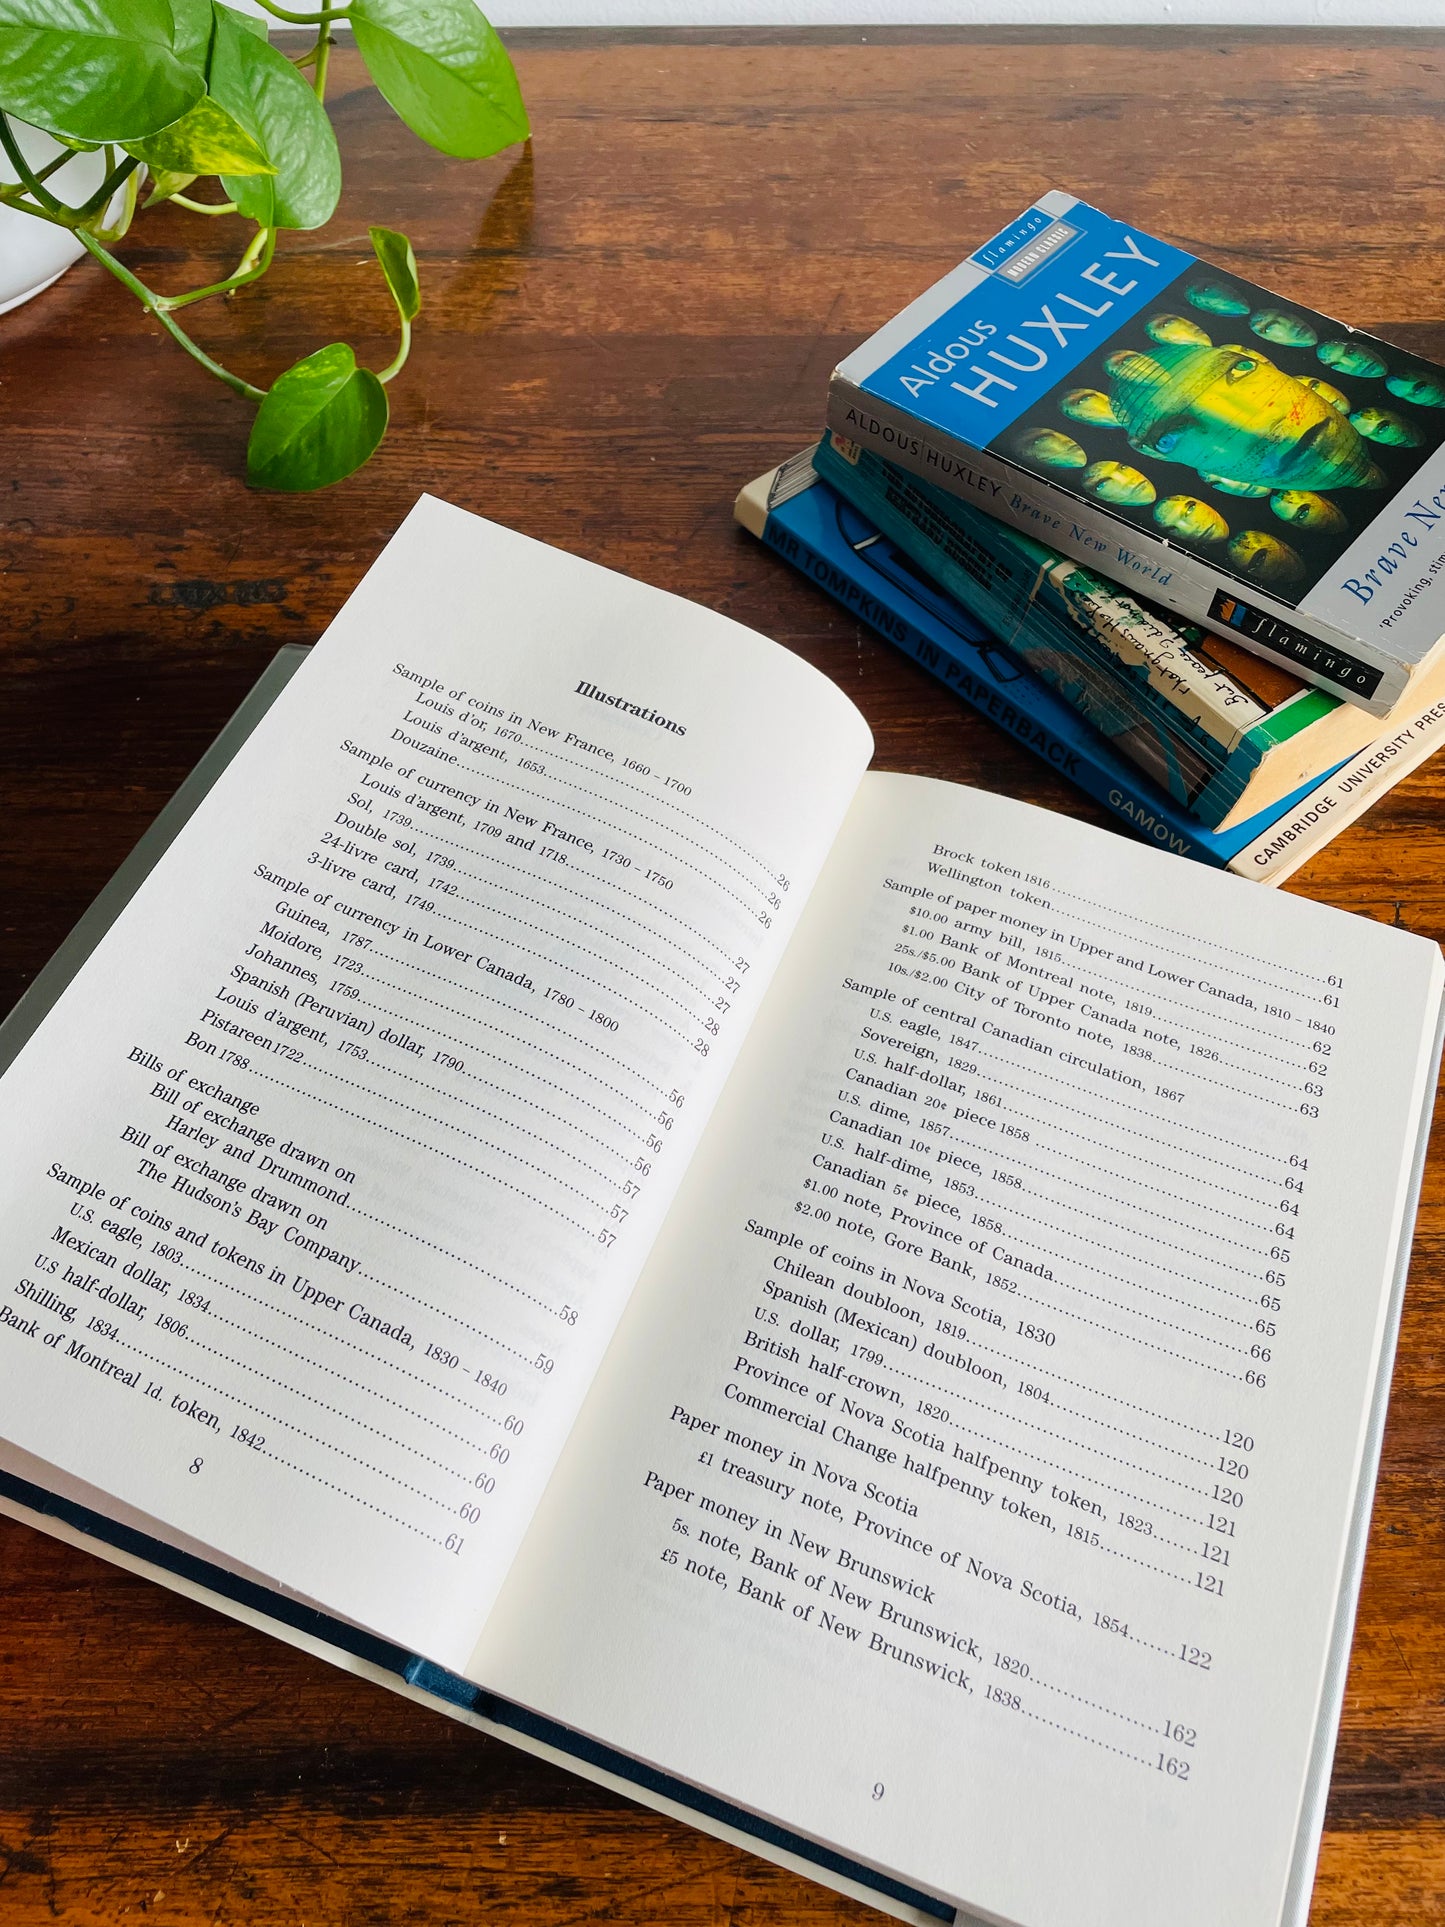 Illustrations
Sample of coins in New France, 1660 – 1700
Louis d'or, 1670..........26
Louis d'argent, 1653..........26
Douzaine..........26
Sample of currency in New France, 1730 – 1750
Louis d'argent, 1709 and 1718..........27
Sol, 1739..........27
Double sol, 1739..........27
24-livre card, 1742..........28
3-livre card, 1749..........28
Sample of currency in Lower Canada, 1780 – 1800
Guinea, 1787..........56
Moidore, 1723..........56
Johannes, 1759..........56
Spanish (Peruvian) dollar, 1790..........56
Louis d'argent, 1753..........57
Pistareen 1722..........57
Bon 1788..........57
Bills of exchange
Bill of exchange drawn on
Harley and Drummond..........58
Bill of exchange drawn on
The Hudson's Bay Company..........59
Sample of coins and tokens in Upper Canada, 1830 – 1840
U.S. eagle, 1803..........60
Mexican dollar, 1834..........60
U.S half-dollar, 1806..........60
Shilling, 1834..........60
Bank of Montreal 1d. token, 1842..........61
8
Brock token 1816..........61
Wellington token..........61
Sample of paper money in Upper and Lower Canada, 1810 – 1840
$10.00 army bill, 1815..........62
$1.00 Bank of Montreal note, 1819..........62
25s./$5.00 Bank of Upper Canada note, 1826..........63
10s./$2.00 City of Toronto note, 1838..........63
Sample of central Canadian circulation, 1867
U.S. eagle, 1847..........64
Sovereign, 1829..........64
U.S. half-dollar, 1861..........64
Canadian 20¢ piece 1858..........64
U.S. dime, 1857..........65
Canadian 10¢ piece, 1858..........65
U.S. half-dime, 1853..........65
Canadian 5¢ piece, 1858..........65
$1.00 note, Province of Canada..........66
$2.00 note, Gore Bank, 1852..........66
Sample of coins in Nova Scotia, 1830
Chilean doubloon, 1819..........120
Spanish (Mexican) doubloon, 1804..........120
U.S. dollar, 1799..........120
British half-crown, 1820..........121
Province of Nova Scotia halfpenny token, 1823..........121
Commercial Change halfpenny token, 1815..........121
Paper money in Nova Scotia
£1 treasury note, Province of Nova Scotia, 1854..........122
Paper money in New Brunswick
5s. note, Bank of New Brunswick, 1820..........162
£5 note, Bank of New Brunswick, 1838..........162
9
flamingo
MODERN CLASSIC
Aldous
HUXLEY
Brave New
'Provoking, stim
ALDOUS HUXLEY Brave New World
flamingo
BERTRAND RUSSELL
MR TOMPKINS IN PAPERBACK
GAMOW
CAMBRIDGE UNIVERSITY PRES